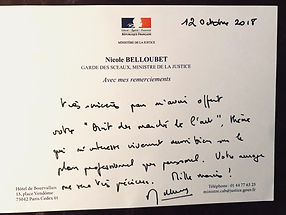 12 Octobre 2018
Liberté • Égalité • Fraternité
RÉPUBLIQUE FRANÇAISE
MINISTÈRE DE LA JUSTICE
Nicole BELLOUBET
GARDE DES SCEAUX, MINISTRE DE LA JUSTICE
Avec mes remerciements
Très sincères pour m'avoir offert
votre "Droit des marchés de l'art", thème
qui m'intéresse vivement aussi bien sur le
plan professionnel que personnel. Votre ouvrage
me sera très précieux. Mille mercis !
Hôtel de Bourvallais
13, place Vendôme
75042 Paris Cedex 01
Téléphone : 01 44 77 63 23
ministre.cab@justice.gouv.fr